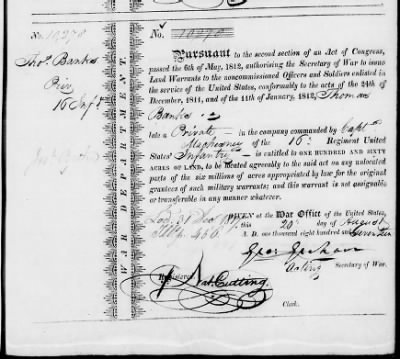 No. 10278
No. 10278
Thos. Banks
16 Inft.
WAR DEPARTMENT.
Pursuant to the second section of an Act of Congress,
passed the 6th of May, 1812, authorising the Secretary of War to issue
Land Warrants to the noncommissioned Officers and Soldiers enlisted in
the service of the United States, conformably to the acts of the 24th of
December, 1811, and of the 11th of January, 1812, Thomas
Banks
late a Private in the company commanded by Captn
of the 16th Regiment United
States' Infantry is entitled to ONE HUNDRED AND SIXTY
ACRES OF LAND, to be located agreeably to the said act on any unlocated
parts of the six millions of acres appropriated by law for the original
grantees of such military warrants; and this warrant is not assignable
or transferable in any manner whatever.
GIVEN at the War Office of the United States,
this 20th day of August
A. D. one thousand eight hundred and Seventeen
Geo: Graham
Acting Secretary of War.
Registered
Nat. Cutting
Clerk.